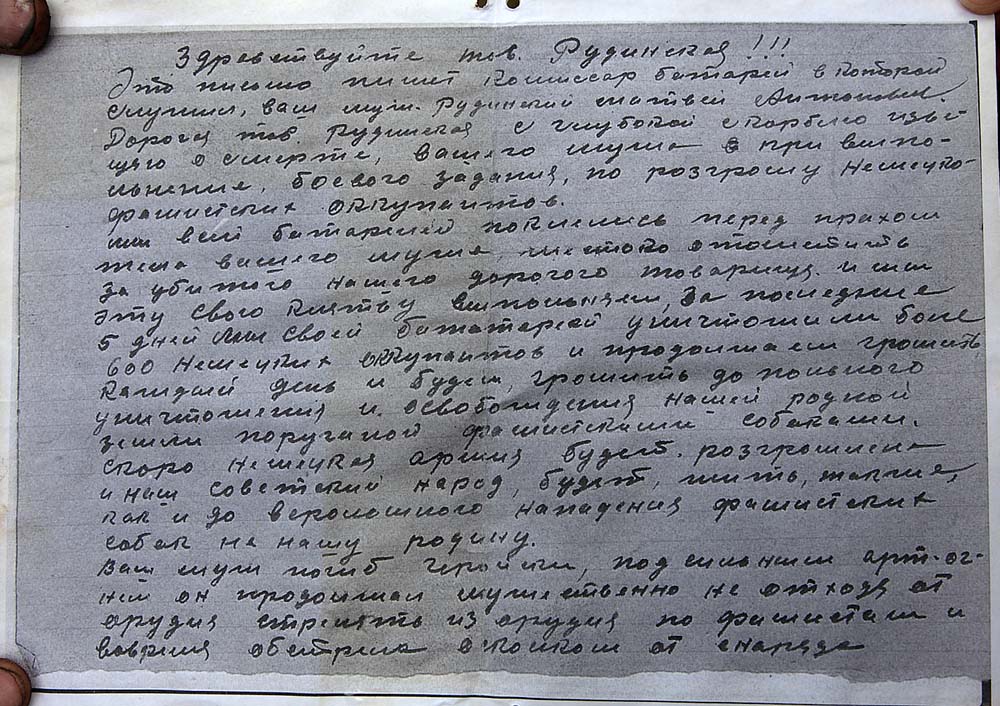 Здравствуйте тов. Рудинская!!!
Это письмо пишет Комиссар батарей в которой
служил, ваш муж. Рудинский Матвей Антонович.
Дорогая тов. Рудинская с глубокой скорбью изве-
щаю о смерте, вашего мужа в при выпо-
льнение, боевого задания, по розгрому Немецко-
фашистских оккупантов.
мы всей батареей поклялись перед прахом
тела вашего мужа, жестоко отомстить
за убитого нашего дорогого товарища. и мы
эту свою клятву выпольняем, За последние
5 дней мы своей бататареей уничтожили боле
600 Немецких оккупантов и продолжаем грошить
каждый день и будем, грошить до польного
уничтожения и. освобождения нашей родной
земли поруганой фашискими собаками.
скоро немецкая армия будет. розгромлена
и наш советский народ, будет, жить, также,
как и до вероломного нападения фашистких
собак на нашу родину.
Ваш муж погиб геройски, под сильным арт-ог-
нем он продолжал мужественно не отходя от
орудия стрелять из орудия по фашистам и
вовремя обстрела осколком от снаряда